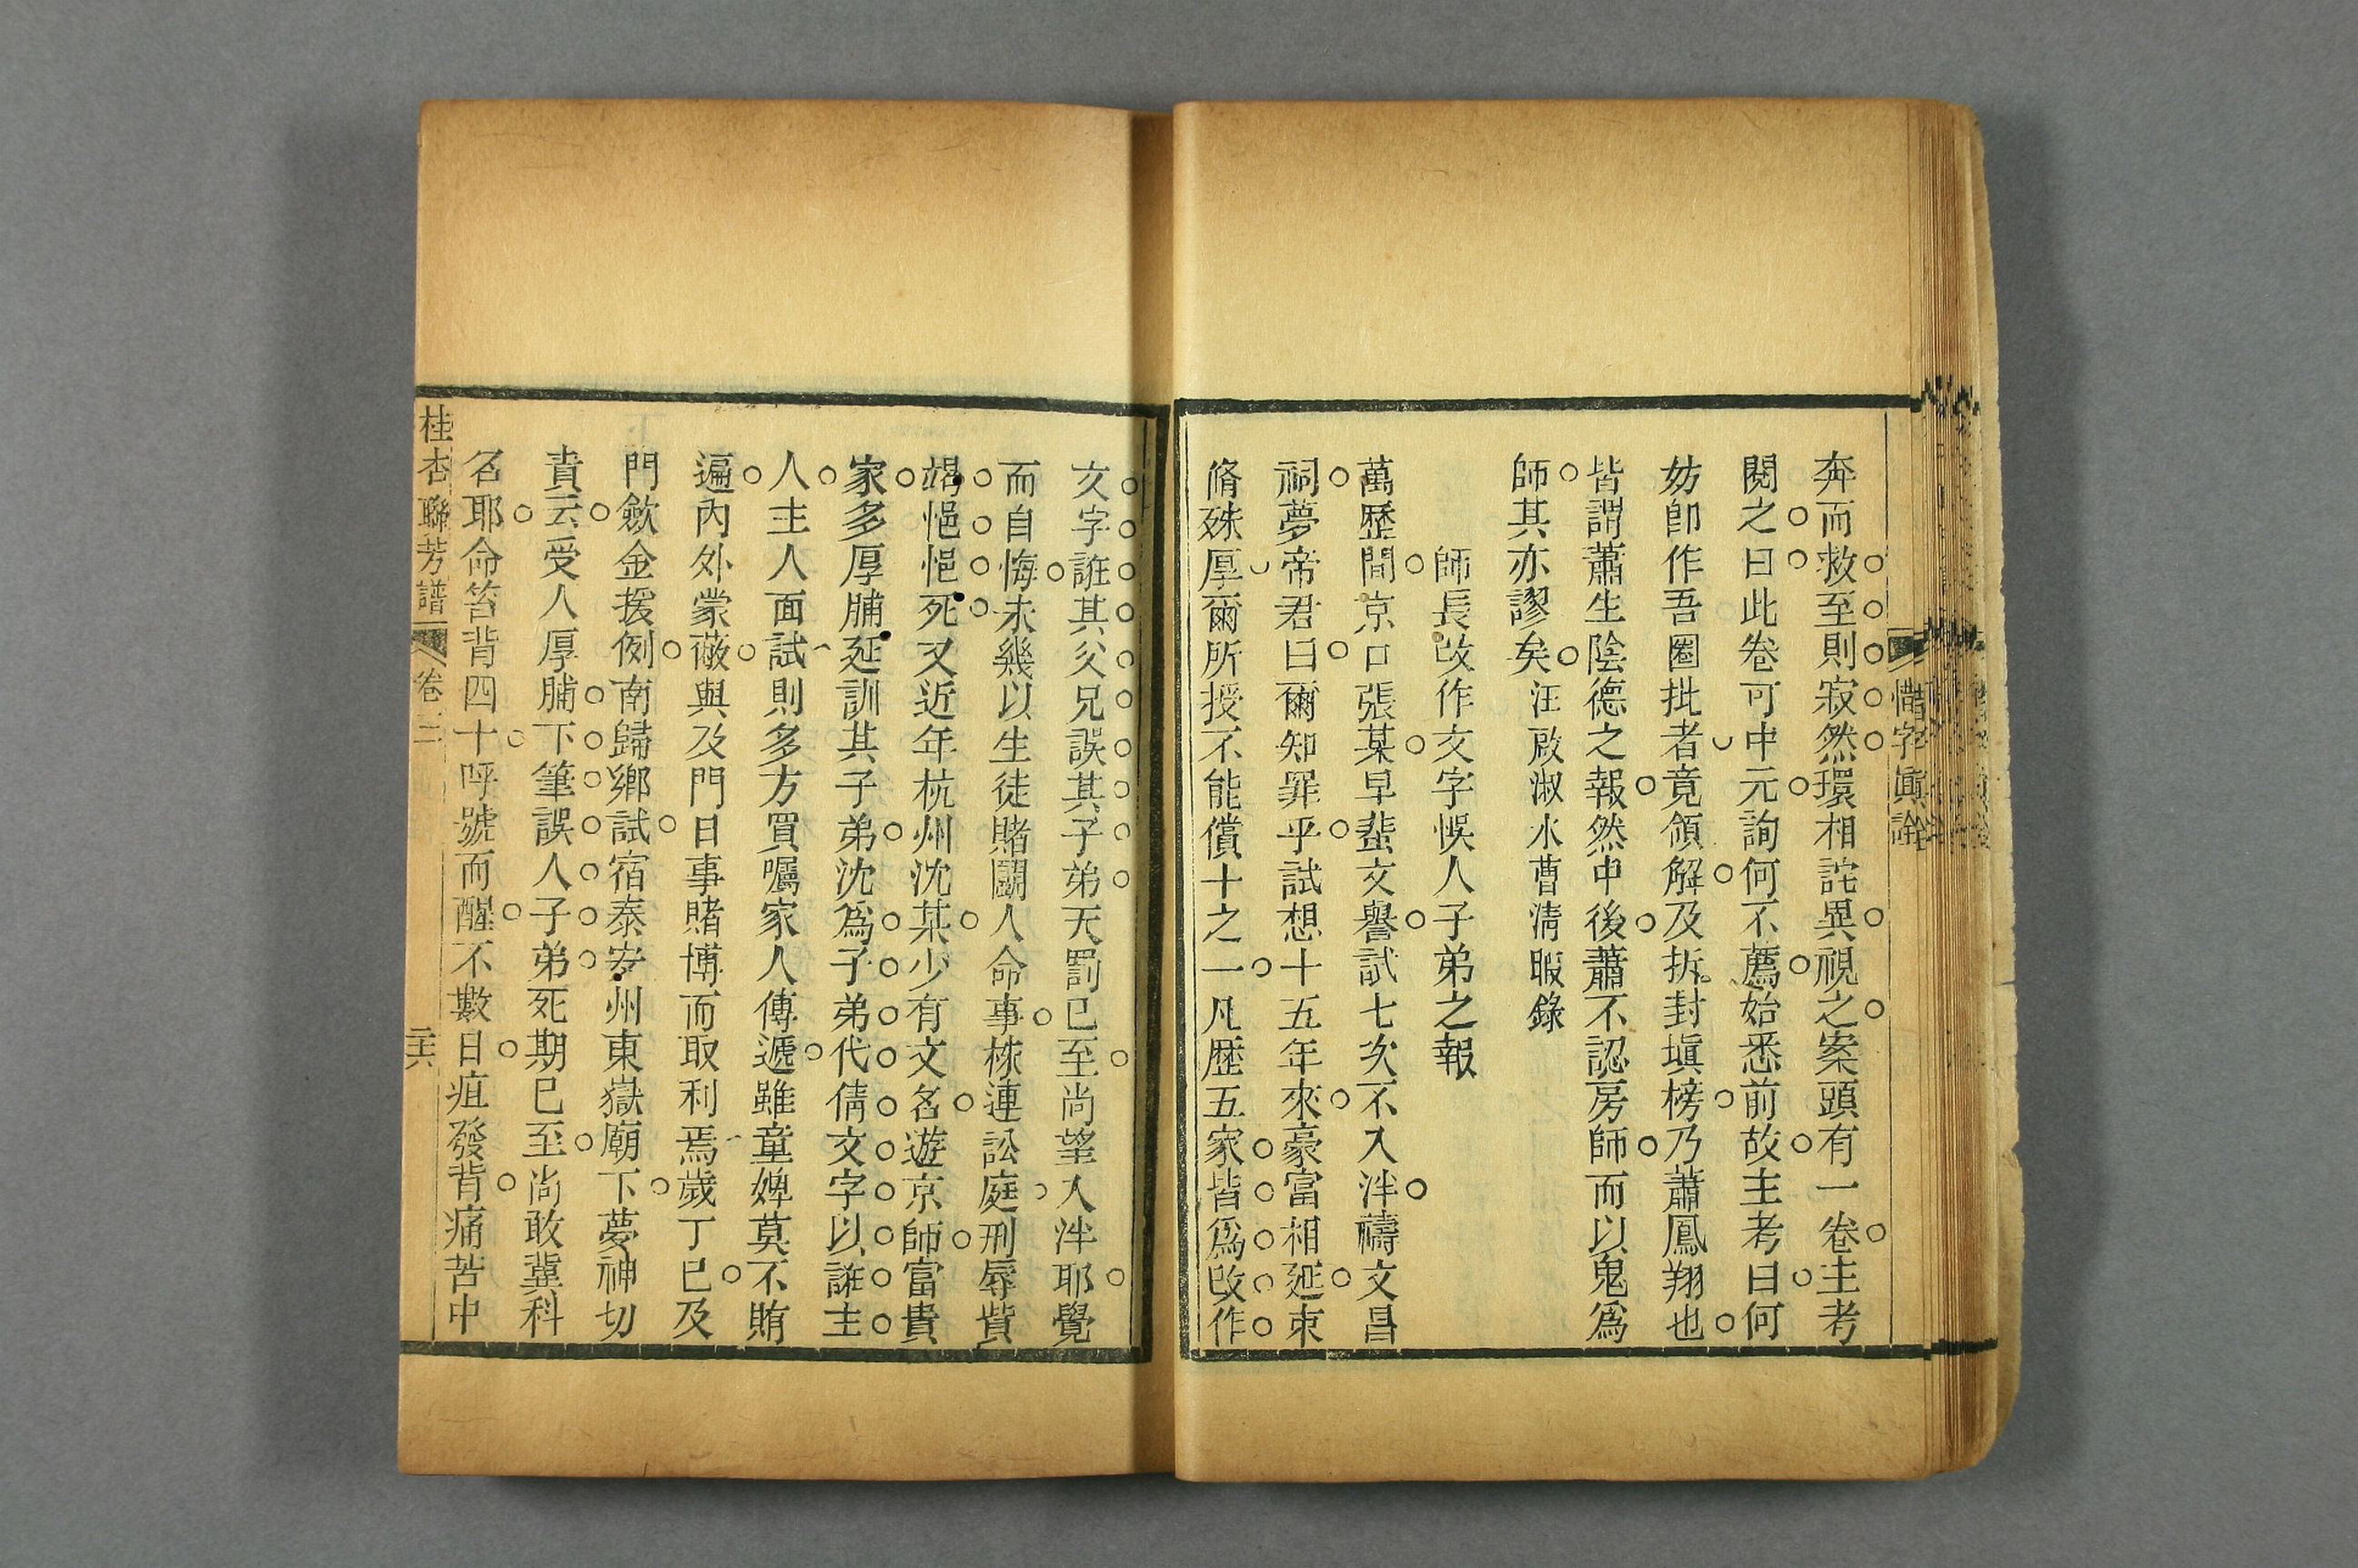 惜字眞詮
奔而救至則寂然環相詫異視之案頭有一卷主考
閱之曰此卷可中元詢何不薦始悉前故主考曰何
妨卽作吾圈批者竟領解及拆封塡榜乃蕭鳳翔也
皆謂蕭生陰德之報然中後蕭不認房師而以鬼爲
師其亦謬矣汪啟淑水曹淸暇錄
師長改作文字悞人子弟之報
萬歷間京口張某早蜚文譽試七次不入泮禱文昌
祠夢帝君曰爾知罪乎試想十五年來豪富相延束
脩殊厚爾所授不能償十之一凡歷五家皆爲改作
文字誑其父兄誤其子弟天罰已至尚望入泮耶覺
而自悔未幾以生徒賭鬭人命事株連訟庭刑辱貲
竭悒悒死又近年杭州沈某少有文名遊京師富貴
家多厚脯延訓其子弟沈爲子弟代倩文字以誑主
人主人面試則多方買囑家人傳遞雖童婢莫不賄
遍內外蒙蔽與及門日事賭博而取利焉歲丁巳及
門歛金援例南歸鄉試宿泰安州東嶽廟下夢神切
責云受人厚脯下筆誤人子弟死期已至尚敢冀科
名耶命笞背四十呼號而醒不數日疽發背痛苦中
桂杏聯芳譜 卷二 二六